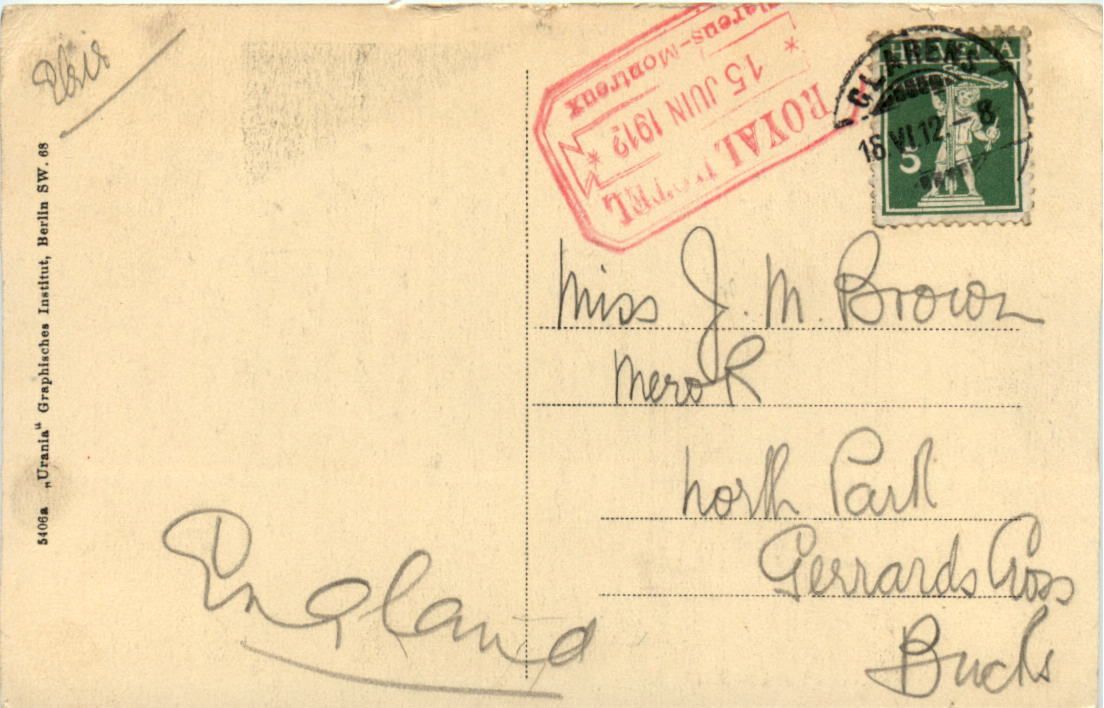 5406a „Urania“ Graphisches Institut, Berlin SW. 68
ROYAL HOTEL
* 15 JUIN 1912 *
Clarens-Montreux
HELVETIA
5
CLARENS
16 VI 12 - 8
Miss J. M. Brown
North Park
Gerrards Cross
Bucks
England